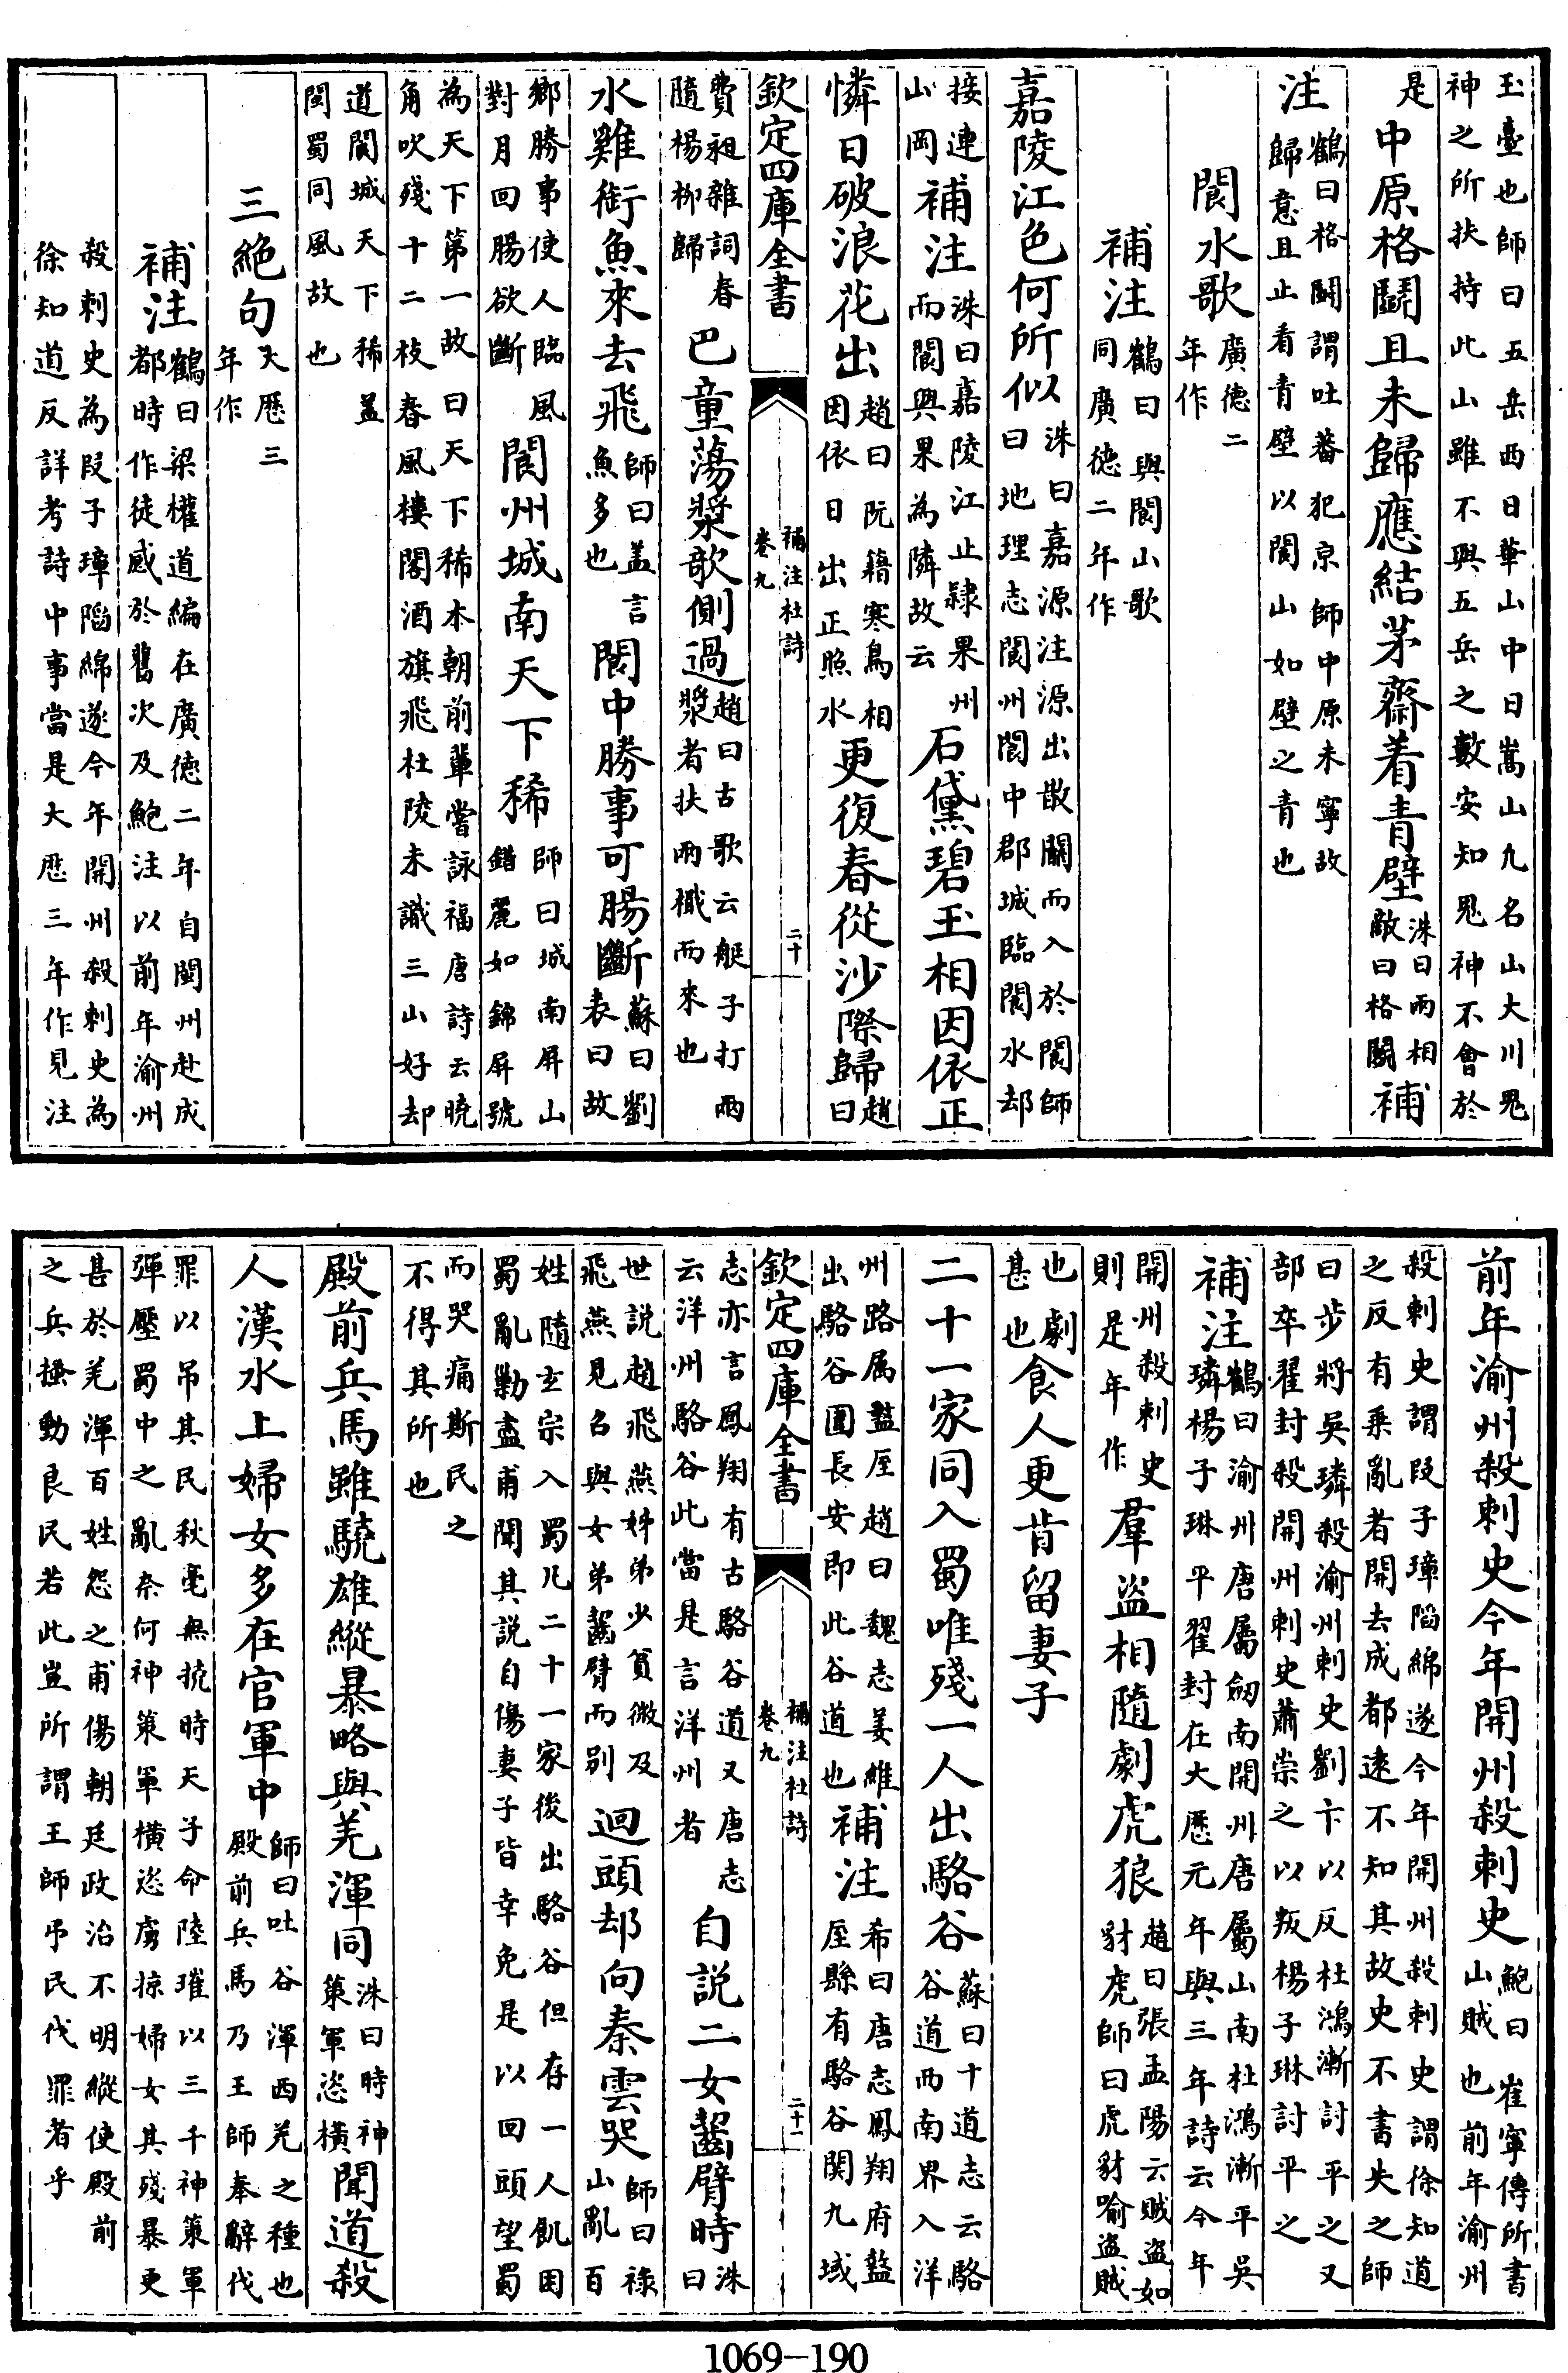 玉臺也師曰五岳西曰華山中曰嵩山九名山大川鬼
神之所扶持此山雖不與五岳之數安知鬼神不會於
是中原格鬭且未歸應結茅齋着青壁洙曰兩相敵曰格鬭補
注鶴曰格鬭謂吐蕃犯京師中原未寧故歸意且止看青壁以閬山如壁之青也
閬水歌廣德二年作
補注鶴曰與閬山歌同廣德二年作
嘉陵江色何所似洙曰嘉源注源出散關而入於閬師曰地理志閬州閬中郡城臨閬水却
接連山岡補注洙曰嘉陵江止隸果州而閬與果為隣故云石黛碧玉相因依正
憐日破浪花出趙曰阮籍寒鳥相因依日出正照水更復春從沙際歸趙曰
欽定四庫全書 補注杜詩 卷九 二十
費昶雜詞春隨楊柳歸巴童蕩槳歌側過趙曰古歌云艇子打兩槳者扶兩檝而來也
水雞銜魚來去飛師曰盖言魚多也閬中勝事可腸斷蘇曰劉表曰故
鄉勝事使人臨風對月回腸欲斷閬州城南天下稀師曰城南屏山錯麗如錦屏號
為天下第一故曰天下稀本朝前輩嘗詠福唐詩云曉
角吹殘十二枝春風樓閣酒旗飛杜陵未識三山好却
道閬城天下稀盖
閩蜀同風故也
三絕句大厯三年作
補注鶴曰梁權道編在廣德二年自閬州赴成都時作徒感於舊次及鮑注以前年渝州
殺刺史為段子璋陷綿遂今年開州殺刺史為
徐知道反詳考詩中事當是大厯三年作見注
前年渝州殺刺史今年開州殺刺史鮑曰崔寧傳所書山賊也前年渝州
殺刺史謂段子璋陷綿遂今年開州殺刺史謂徐知道
之反有乗亂者開去成都逺不知其故史不書失之師
曰步將吳璘殺渝州刺史劉卞以反杜鴻漸討平之又
部卒翟封殺開州刺史蕭崇之以叛楊子琳討平之
補注鶴曰渝州唐屬劒南開州唐屬山南杜鴻漸平吳璘楊子琳平翟封在大歷元年與三年詩云今年
開州殺刺史則是年作羣盜相隨劇虎狼趙曰張孟陽云賊盜如豺虎師曰虎豺喻盜賊
也劇甚也食人更肯留妻子
二十一家同入蜀唯殘一人出駱谷蘇曰十道志云駱谷道西南界入洋
州路属盩厔趙曰魏志姜維出駱谷圍長安即此谷道也補注希曰唐志鳳翔府盩厔縣有駱谷関九域
欽定四庫全書 補注杜詩 卷九 二十一
志亦言鳳翔有古駱谷道又唐志云洋州駱谷此當是言洋州者自説二女齧臂時洙曰
世説趙飛燕姊弟少貧微及飛燕見召與女弟齧臂而别迴頭却向秦雲哭師曰禄山亂百
姓隨玄宗入蜀凡二十一家後出駱谷但存一人飢困
蜀亂勦盡甫聞其説自傷妻子皆幸免是以回頭望蜀
而哭痛斯民之
不得其所也
殿前兵馬雖驍雄縱暴略與羌渾同洙曰時神策軍恣橫聞道殺
人漢水上婦女多在官軍中師曰吐谷渾西羌之種也殿前兵馬乃王師奉辭伐
罪以吊其民秋毫無擾時天子命陸璀以三千神策軍
彈壓蜀中之亂奈何神策軍橫恣虜掠婦女其殘暴更
甚於羌渾百姓怨之甫傷朝廷政治不明縱使殿前
之兵搔動良民若此豈所謂王師弔民伐罪者乎
1069-190